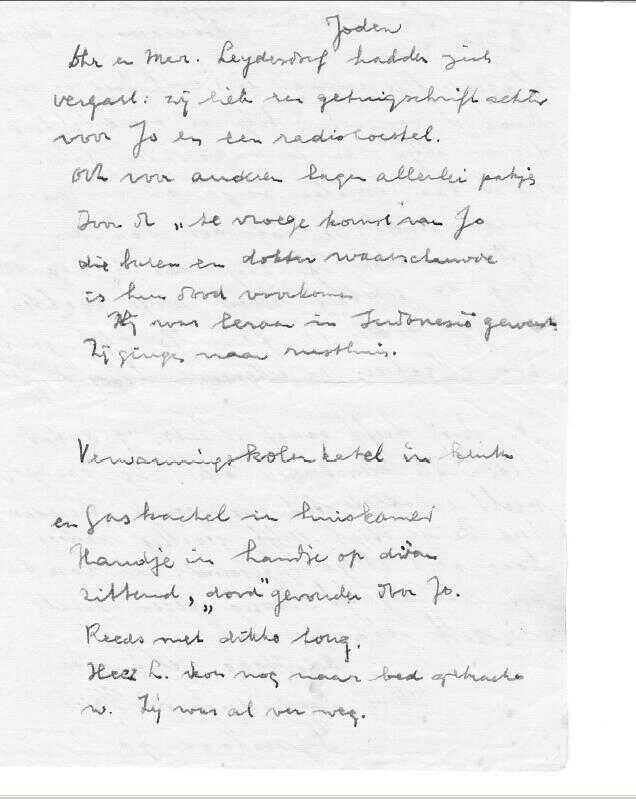 Joden
Dhr en Mevr. Leydesdorf hadden zich
vergast: zij liet een getuigschrift achter
voor Jo en een radiotoestel.
Ook voor anderen lagen allerlei pakjes
Door de „te vroege komst" van Jo
die buren en dokter waarschuwde
is hun dood voorkomen
Hij was leraar in Indonesië geweest.
Zij gingen naar rusthuis.
Verwarmingskolenketel in keuken
en Gaskachel in huiskamer
Handje in handje op divan
zittend, „dood" gevonden door Jo.
Reeds met dikke tong.
Heer L. kon nog naar bed gebracht
w. Zij was al ver weg.